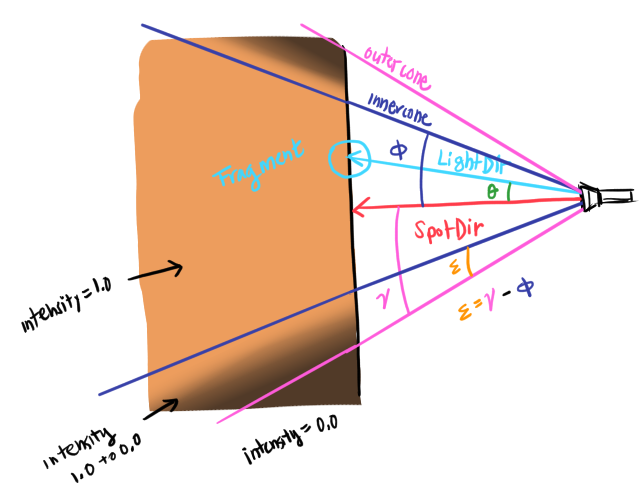 outer cone
inner cone
Fragment
ϕ
LightDir
θ
SpotDir
ε
γ
ε = γ - ϕ
intensity = 1.0
intensity
1.0 to 0.0
intensity = 0.0